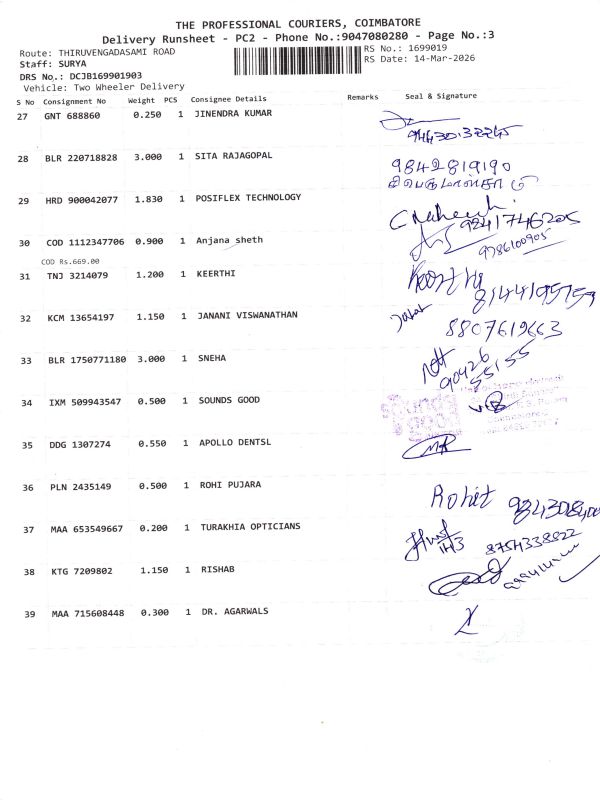 THE PROFESSIONAL COURIERS, COIMBATORE
Delivery Runsheet - PC2 - Phone No.:9047080280 - Page No.:3
Route: THIRUVENGADASAMI ROAD
RS No.: 1699019
Staff: SURYA
RS Date: 14-Mar-2026
DRS No.: DCJB169901903
Vehicle: Two Wheeler Delivery
S No Consignment No Weight PCS Consignee Details Remarks Seal & Signature
27 GNT 688860 0.250 1 JINENDRA KUMAR
28 BLR 220718828 3.000 1 SITA RAJAGOPAL 9842819190
29 HRD 900042077 1.830 1 POSIFLEX TECHNOLOGY
9241746205
30 COD 1112347706 0.900 1 Anjana sheth 9786100905
COD Rs.669.00
31 TNJ 3214079 1.200 1 KEERTHI
32 KCM 13654197 1.150 1 JANANI VISWANATHAN 8807619663
33 BLR 1750771180 3.000 1 SNEHA 90426
55155
34 IXM 509943547 0.500 1 SOUNDS GOOD
35 DDG 1307274 0.550 1 APOLLO DENTSL
36 PLN 2435149 0.500 1 ROHI PUJARA Rohit
37 MAA 653549667 0.200 1 TURAKHIA OPTICIANS 8754338822
38 KTG 7209802 1.150 1 RISHAB
39 MAA 715608448 0.300 1 DR. AGARWALS